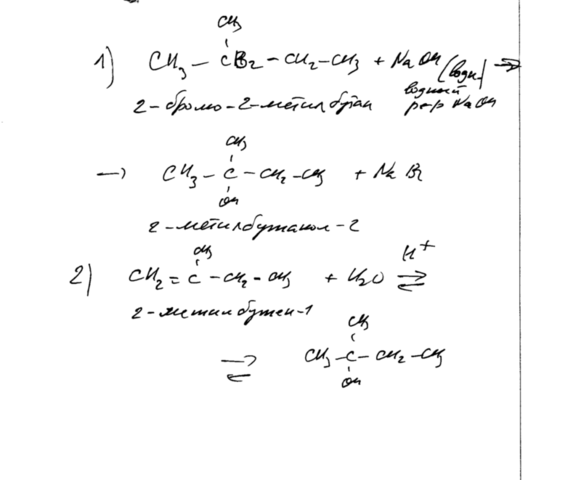 CH3
1) CH3 – CBr – CH2 – CH3 + NaOH (водн.) →
2-бромо-2-метилбутан водный
р-р NaOH
CH3
→ CH3 – C – CH2 – CH3 + NaBr
OH
2-метилбутанол-2
CH3
2) CH2 = C – CH2 – CH3 + H2O ⇌ H+
2-метилбутен-1
CH3
⇌ CH3 – C – CH2 – CH3
OH